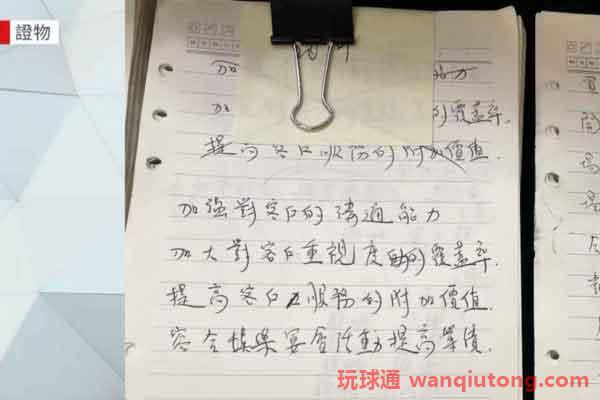 證物
加 能力
加 的覆蓋率.
提高客户服務的附加價值.
加強對客户的溝通能力
加大對客户重視度的覆蓋率.
提高客户服務的附加價值.
宴會活動提高業績.
玩球通 wanqiutong.com